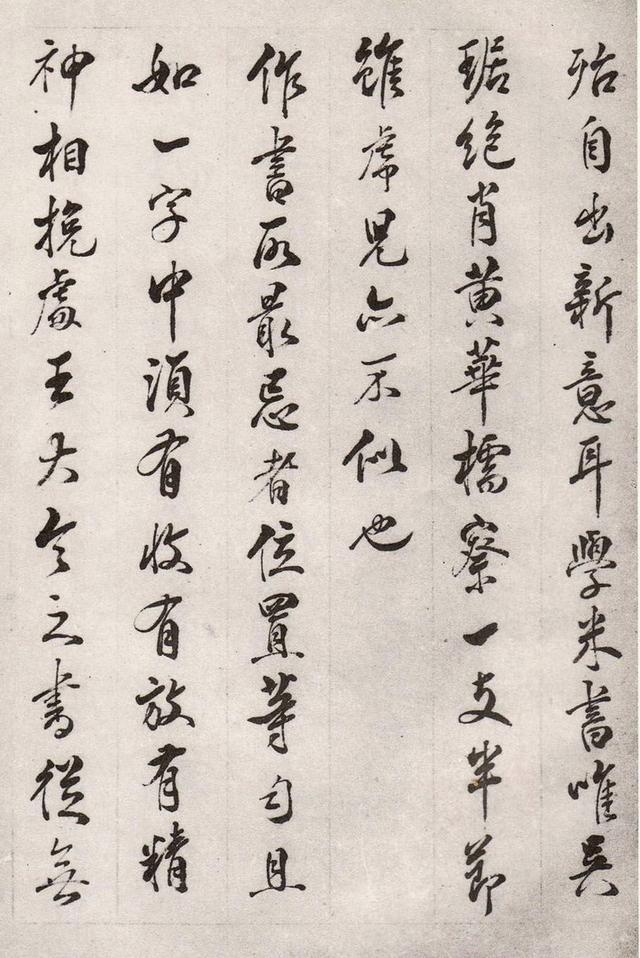 始自出新意耳學米書唯吳
琚絕肖黃華樗寮一支半節
雖虎兒亦不似也
作書所最忌者位置等勻且
如一字中須有收有放有精
神相挽處王大令之書從無